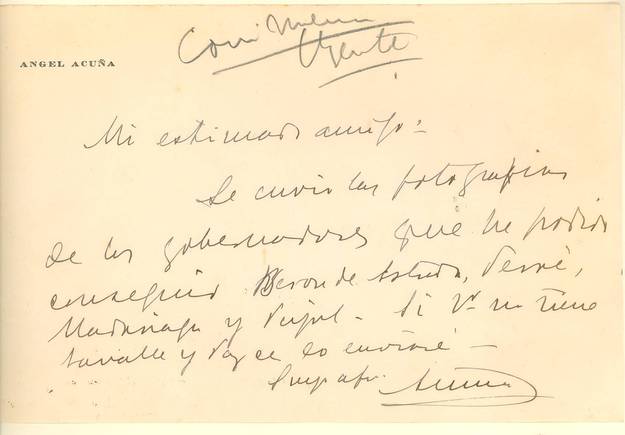 ANGEL ACUÑA
Urgente
Mi estimado amigo:
Le envio las fotografias
de los gobernadores que he podido
conseguir Beron de Astrada, Ferré,
Madariaga y Pujol - Si Vd no tiene
Lavalle y Paz se lo enviaré -
Acuña